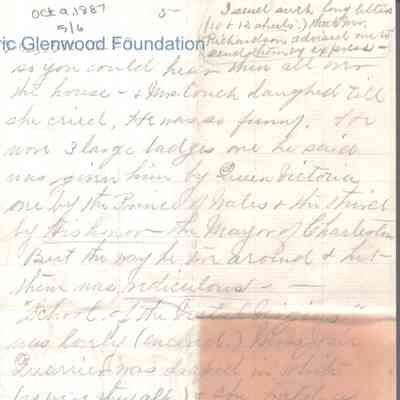 Oct 9, 1887
5/6
5-
I send such long letters
(10 & 12 sheets) that Mr.
Richardson advised me to
send them by express -
ric Glenwood Foundation
so you could hear them all over
the house - & Mrs. Couch laughed till
she cried, He was so funny. For
wore 3 large badges one he said
was given him by Queen Victoria
one by the Prince of Wales & the third
by His honor - the Mayor of Charleston
But the way he tore around & hit
them was rediculous - -
"School of the Vestal Virgins"
was lovely
Quarrier was dressed in white